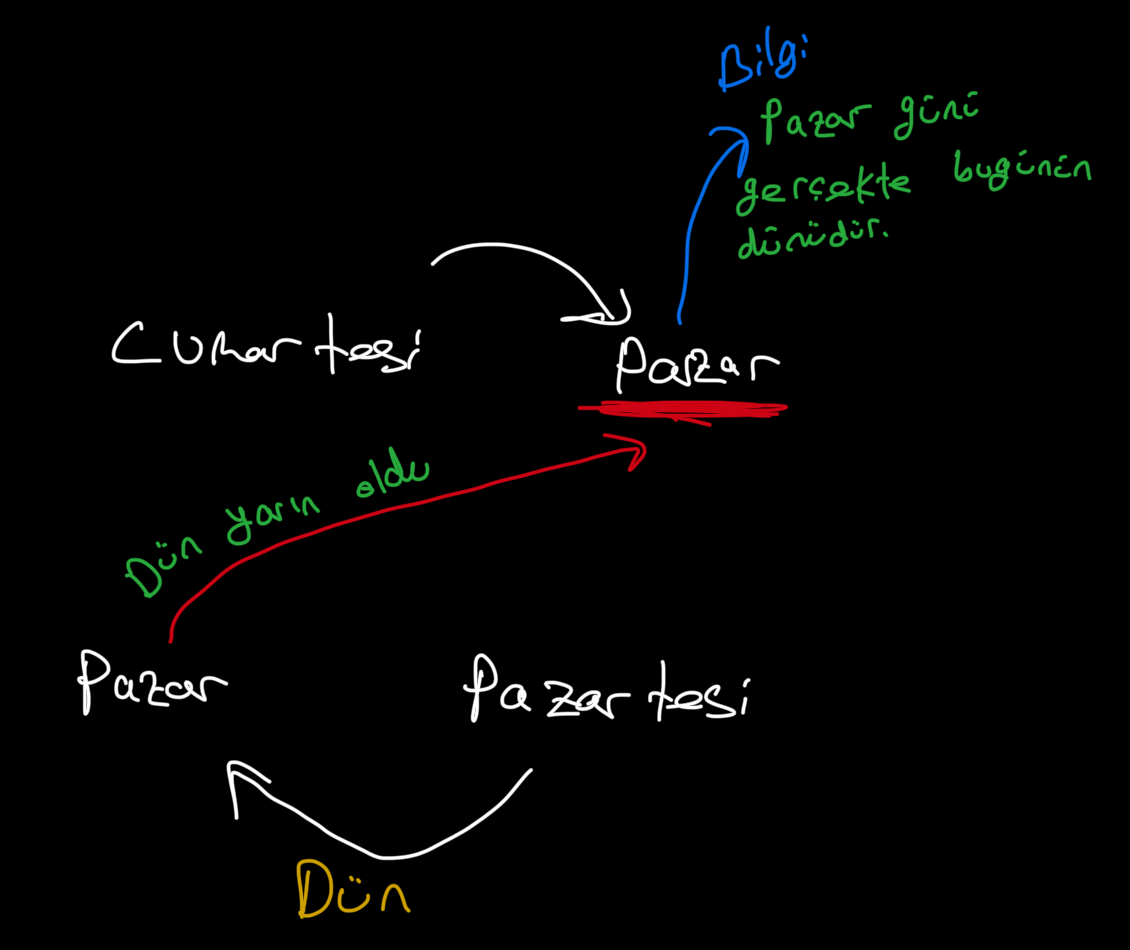 Bilgi
Pazar günü
gerçekte bugünün
dünüdür.
Cumartesi
Pazar
Dün yarın oldu
Pazar
Pazartesi
Dün